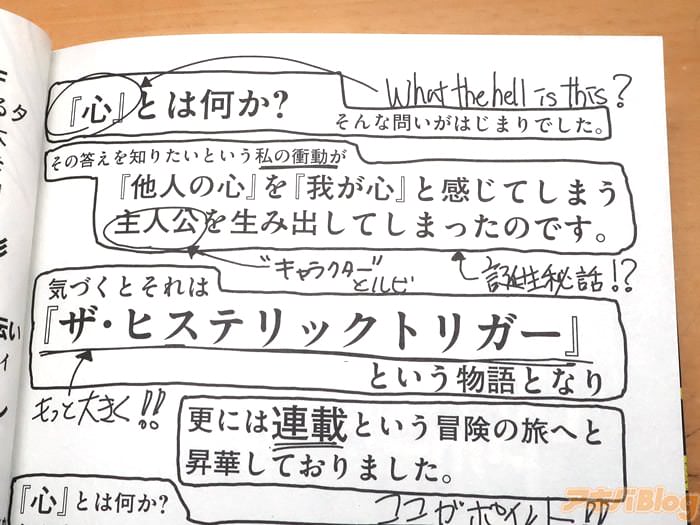 『心』とは何か?
What the hell is this?
そんな問いがはじまりでした。
その答えを知りたいという私の衝動が
『他人の心』を『我が心』と感じてしまう
主人公を生み出してしまったのです。
"キャラクター"
とルビ
誕生秘話!?
気づくとそれは
『ザ・ヒステリックトリガー』
という物語となり
もっと大きく!!
更には連載という冒険の旅へと
昇華しておりました。
『心』とは何か?
ココがポイント
アキバBlog